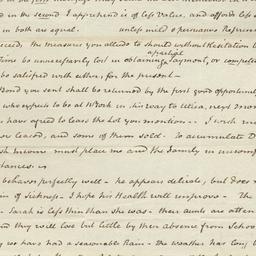 in the second I apprehend is of less Value, and affords less
in both are equal. unless mild & persuasive
ceed, the measures you allude to should without Hesitation
Time be unnecessarily lost in obtaining a special Payment, or
be satisfied with either, for the present –
Bond you sent shall be returned by the first good opportunity
who expects to be at Work in his way to Utica, next
have agreed to lease the Lot you mention -- I wish
or leased, and some of them sold. To accumulate D
must place me and the Family in
stances is
behaves perfectly well – he appears delicate, but does
of Sickness – I hope his Health will improve – The
Sarah is less thin than she was – their aunts are atten
and they will lose but little by their absence from School
we have had a seasonable Rain – the weather has long b